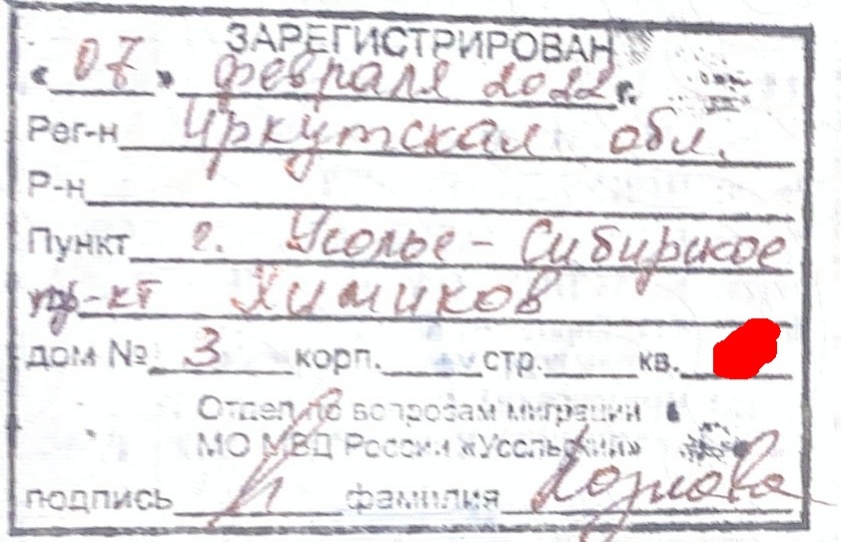 ЗАРЕГИСТРИРОВАН
«07» февраля 2022 г.
Рег-н Иркутская обл.
Р-н
Пункт г. Усолье-Сибирское
пр-кт Химиков
дом № 3 корп. стр. кв.
Отдел по вопросам миграции
МО МВД России «Усольский»
подпись фамилия Козлова